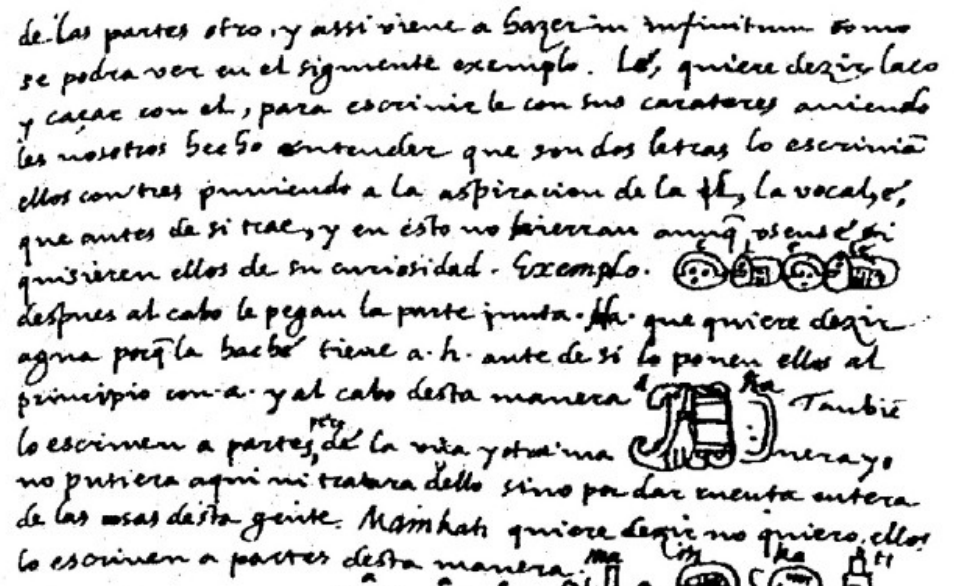 de las partes otro, y assi viene a hazer in infinitum como
se podra ver en el siguiente exemplo. Lé, quiere dezir laço
y caçar con el, para escrivirle con sus carateres aviendo
les nosotros hecho entender que son dos letras lo escrivia̅
ellos con tres puniendo a la aspiracion de la l, la vocal, é,
que antes de si trae, y en ésto no hierran aunq̅ usense si
quisieren ellos de su curiosidad. Exemplo. e l e le
despues al cabo le pegan la parte junta. Ha. que quiere dezir
agua porq̅ la haché tiene a. h. ante de si lo ponen ellos al
principio con a. y al cabo desta manera a ha Tanbie̅
lo escriven a partes, pero de la una y otra ma nera yo
no pusiera aqui ni tratara dello sino por dar cuenta entera
de las cosas desta gente. Mainkati quiere dezir no quiero, ellos
lo escriven a partes desta manera: ma i n ka ti